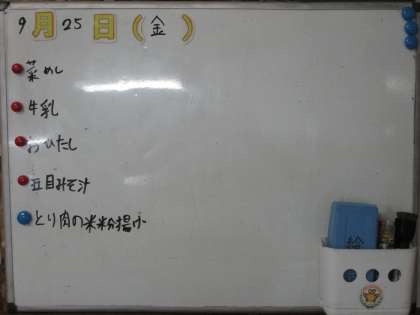 9月25日(金)
菜めし
牛乳
おひたし
五目みそ汁
とり肉の米粉揚げ